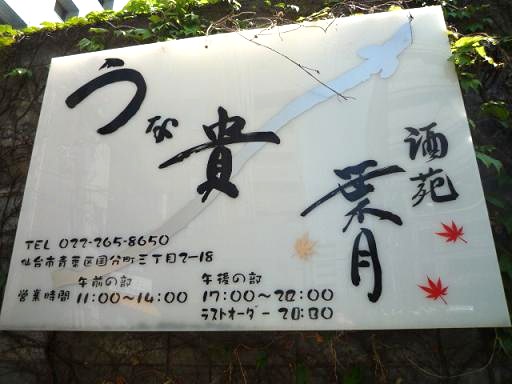 うな貴
酒苑
葉月
TEL 022-265-8650
仙台市青葉区国分町三丁目2-18
午前の部 午後の部
営業時間 11:00～14:00 17:00～22:00
ラストオーダー 20:30